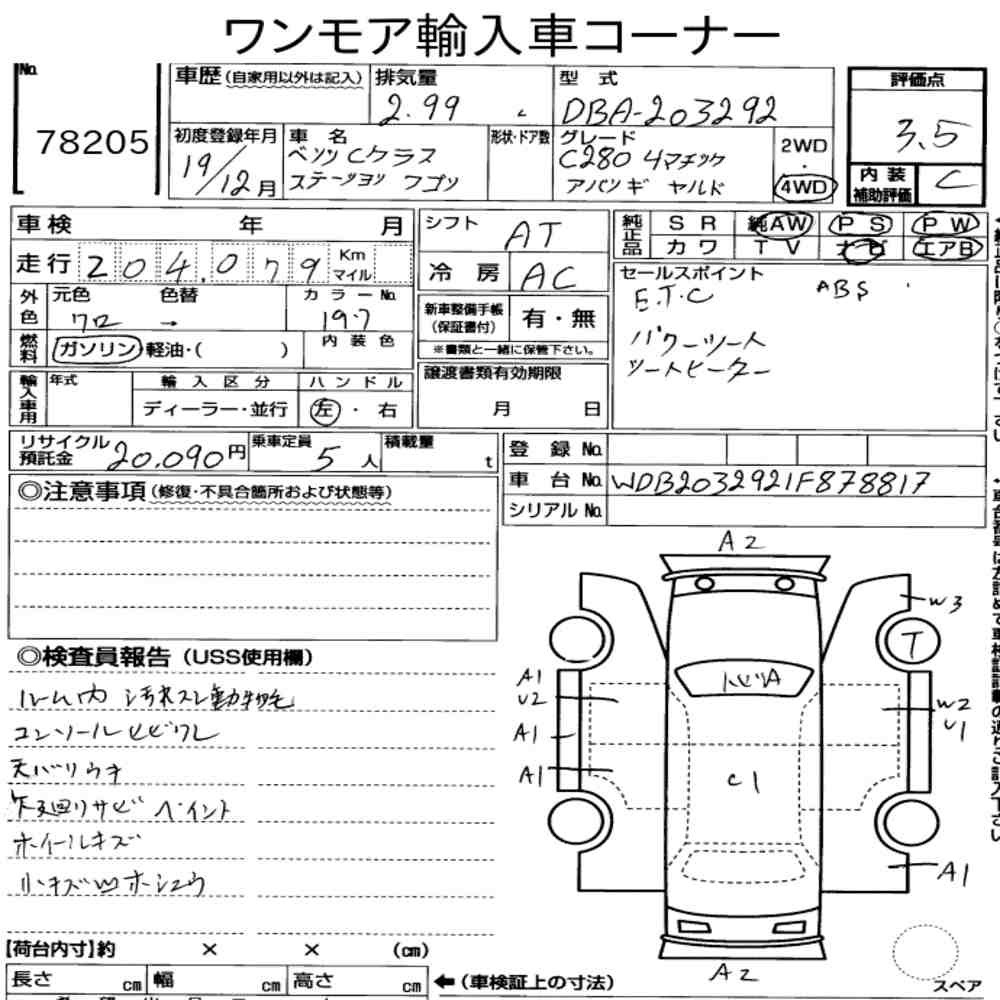 ワンモア輸入車コーナー
No.
78205
車歴(自家用以外は記入)
排気量
2.99 L
型 式
DBA-203292
評価点
3.5
初度登録年月
19/12月
車 名
ベンツ Cクラス
ステーション ワゴン
形状・ドア数
グレード
C280 4マチック
アバンギャルド
2WD
・
4WD
内装
補助評価
C
車検 年 月
シフト
AT
純正品
SR 純AW PS PW
カワ TV ナビ エアB
走行 204,079 Km マイル
冷 房
AC
セールスポイント
E.T.C ABS
パワーシート
シートヒーター
外色
元色 色替
クロ →
カラーNo.
197
新車整備手帳
(保証書付)
有・無
※書類と一緒に保管下さい。
燃料
ガソリン・軽油・( )
内装色
譲渡書類有効期限
月 日
輸入車用
年式
輸入区分
ディーラー・並行
ハンドル
左・右
リサイクル
預託金 20,090円
乗車定員
5人
積載量
t
登 録 No.
車 台 No. WDB2032921F878817
シリアル No.
◎注意事項(修復・不具合箇所および状態等)
◎検査員報告(USS使用欄)
ルーム内 汚れスレ動物毛
コンソールヒビワレ
天バリウキ
下廻りサビ ペイント
ホイールキズ
小キズ凹ホシュウ
A2
W3
T
トビA
A1
U2
A1
A1
W2
U1
C1
A1
A2
スペア
【荷台内寸】約 × × (cm)
長さ cm 幅 cm 高さ cm
←(車検証上の寸法)